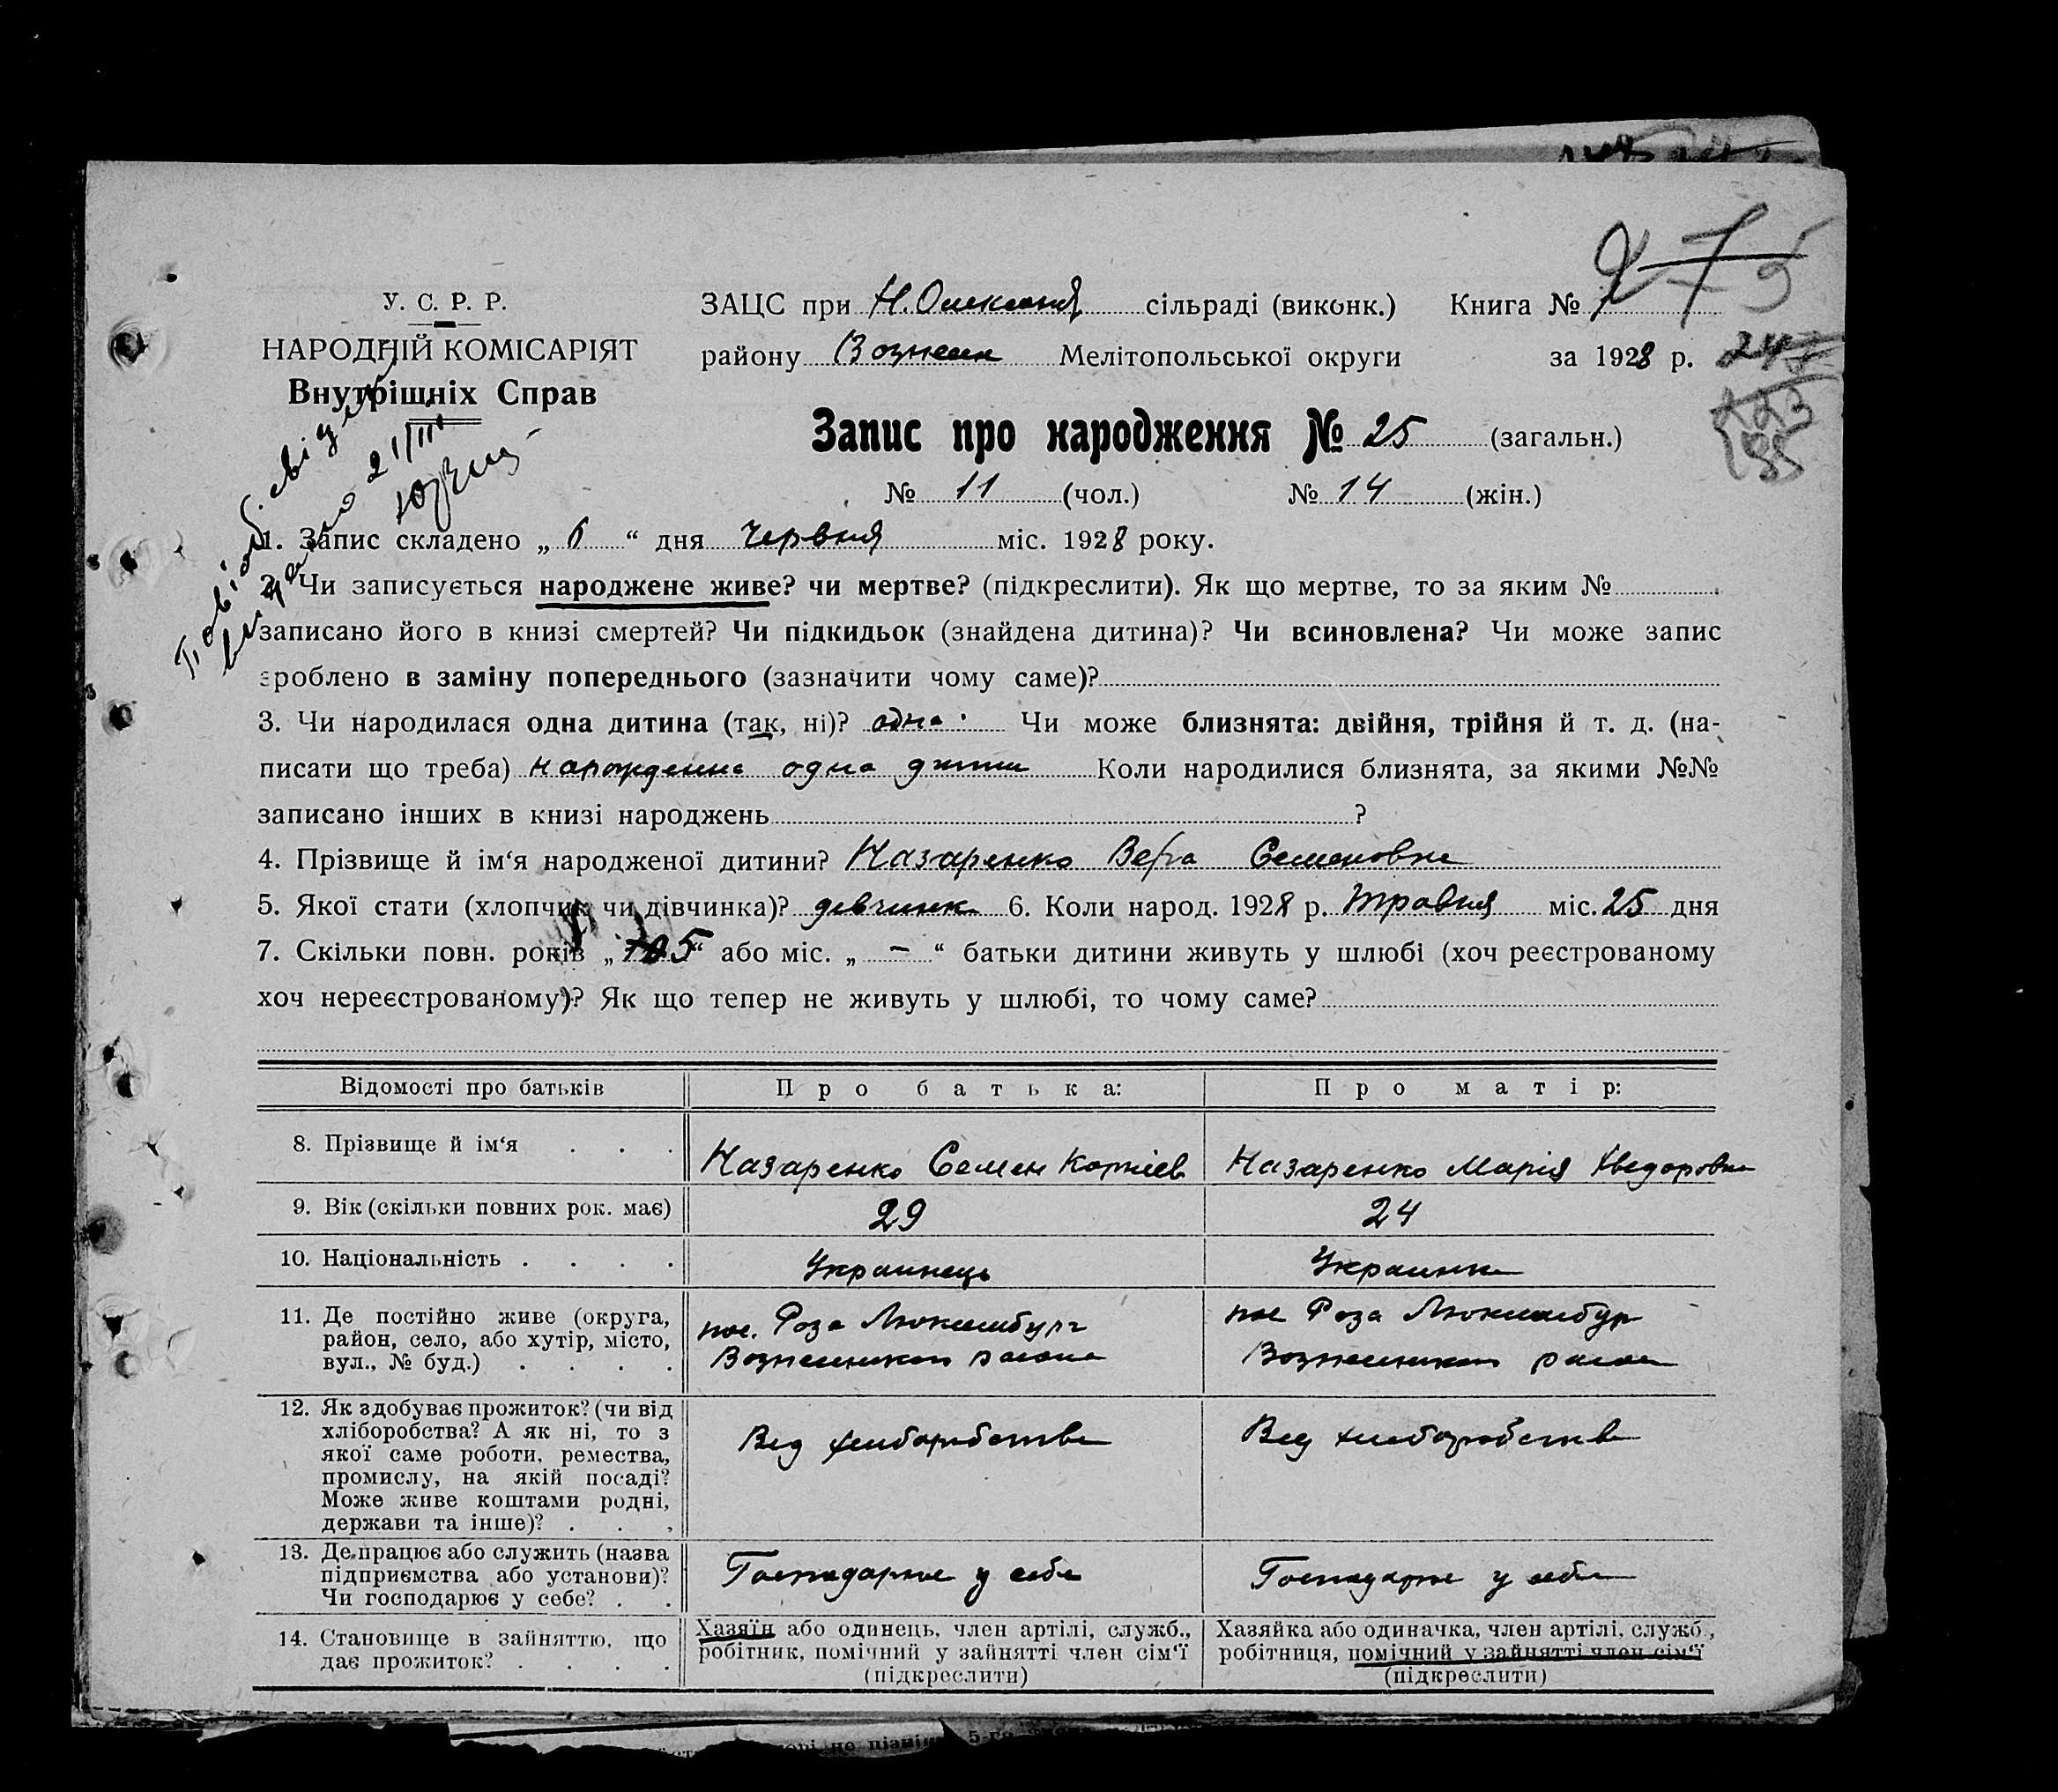 275
У. С. Р. Р.
НАРОДНІЙ КОМІСАРІЯТ
Внутрішніх Справ
ЗАЦС при Н. сільраді (виконк.) Книга №
району Вознесен Мелітопольської округи за 1928 р.
245
223
185
Запис про народження № 25 (загальн.)
№ 11 (чол.) № 14 (жін.)
1. Запис складено „ 6 “ дня Червня міс. 1928 року.
2. Чи записується народжене живе? чи мертве? (підкреслити). Як що мертве, то за яким №
записано його в книзі смертей? Чи підкидьок (знайдена дитина)? Чи всиновлена? Чи може запис
зроблено в заміну попереднього (зазначити чому саме)?
3. Чи народилася одна дитина (так, ні)? одна. Чи може близнята: двійня, трійня й т. д. (на-
писати що треба) нарождена одна Коли народилися близнята, за якими №№
записано інших в книзі народжень ?
4. Прізвище й ім‘я народженої дитини? Назаренко Вера Семеновна
5. Якої стати (хлопчик чи дівчинка)? девчинка 6. Коли народ. 1928 р. Травня міс. 25 дня
7. Скільки повн. років „ 5 “ або міс. „ – “ батьки дитини живуть у шлюбі (хоч реєстрованому
хоч нереєстрованому)? Як що тепер не живуть у шлюбі, то чому саме?
Відомості про батьків Про батька: Про матір:
8. Прізвище й ім‘я . . . Назаренко Семен Корнієв Назаренко Марія Хведоровна
9. Вік (скільки повних рок. має) 29 24
10. Національність . . . . Украинець Украинка
11. Де постійно живе (округа,
район, село, або хутір, місто,
вул., № буд.) . . . .
пос. Роза Люксембург
Вознесенского района
пос Роза Люксембур
Вознесенского района
12. Як здобуває прожиток? (чи від
хліборобства? А як ні, то з
якої саме роботи, ремества,
промислу, на якій посаді?
Може живе коштами родні,
держави та інше)? . . .
Вед хлеборобства
Вед хлеборобства
13. Де працює або служить (назва
підприємства або установи)?
Чи господарює у себе? . .
Господарює у себе
Господарює у себе
14. Становище в зайняттю, що
дає прожиток? . . . .
Хазяїн або одинець, член артілі, служб.,
робітник, помічний у зайнятті член сім‘ї
(підкреслити)
Хазяйка або одиначка, член артілі, служб.,
робітниця, помічний у зайнятті член сім‘ї
(підкреслити)